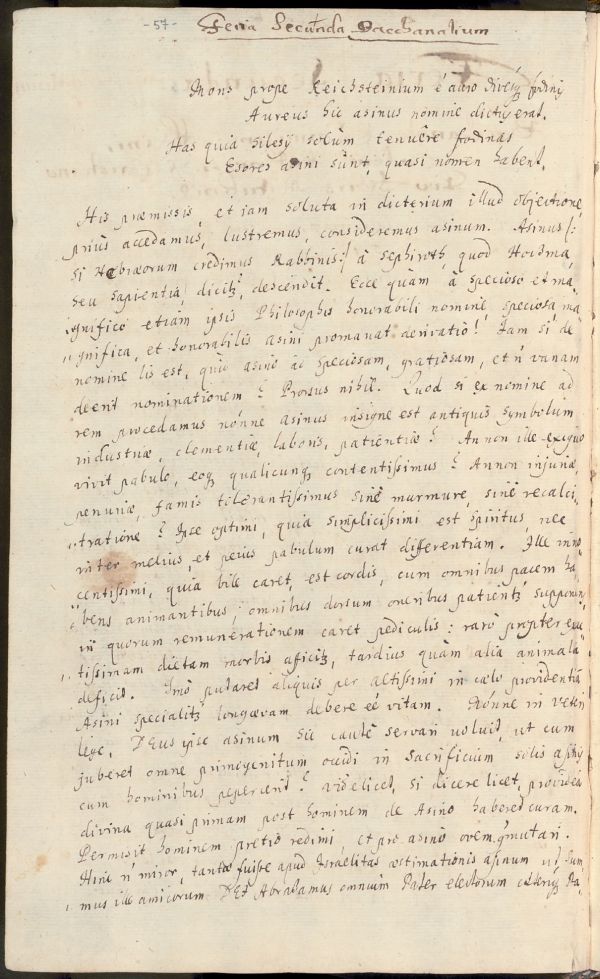 -57-
Feria Secunda Bacchanalium
Mons prope Reichsteinium è auro divesq; fodinis
Aureus hic asinus nomine dictus erat.
Has quia Silesii solùm tenuêre fodinas
Esores asini sunt, quasi nomen habent.
His praemissis, et iam soluta in dicterium illud objectione,
priùs accedamus, lustremus, consideremus asinum. Asinus /:
si Hebraeorum credimus Rabbinis:/ à sephiroth, quod Hochma,
seu sapientia, dicitur, descendit. Ecce quàm à specioso et ma-
gnifico etiam ipsis Philosophis honorabili nomine, speciosa, ma
gnifica, et honorabilis asini promanat derivatio! Iam si de
nomine lis est, quid asino ac speciosam, gratiosam, et ñ vanam
deerit nominationem? Prorsus nihil. Quod si ex nomine ad
rem procedamus nonne asinus insigne est antiquis symbolum
industriae, clementiae, laboris, patientiae? An non ille exiguo
vivit pabulo, eoq; qualicunq; contentissimus? An non injuriae,
penuriae, famis tolerantissimus sinè murmure, sinè recalci-
tratione? Ipse optimi, quia simplicissimi est spiritus, nec
inter melius, et peius pabulum curat differentiam. Ille inno
centissimi, quia bile caret, est cordis, cum omnibus pacem ha-
bens animantibus; omnibus dorsum oneribus patienter supponens
in quorum remunerationem caret pediculis: rarò propter
tissimam dietam morbis afficitur, tardius quàm alia animalia
deficit. Imò putaret aliquis per altissimi in caelo providentiâ
Asini specialiter longaevam debere eê vitam. Nonne in veteri
lege, DEus ipse asinum sic cautè servari voluit, ut cum
juberet omne primogenitum occidi in sacrificium solis asinis
cum hominibus pepercerit? videlicet, si dicere licet, providentia
divina quasi primam post hominem de Asino haberet curam.
Permisit hominem pretio redimi, et pro asino ovem commutari.
Hinc ñ miror, tantae fuisse apud Israelitas aestimationis asinum ut sum
mus ille amicorum DEi Abrahamus omnium Pater electorum caeteriq; Pa-